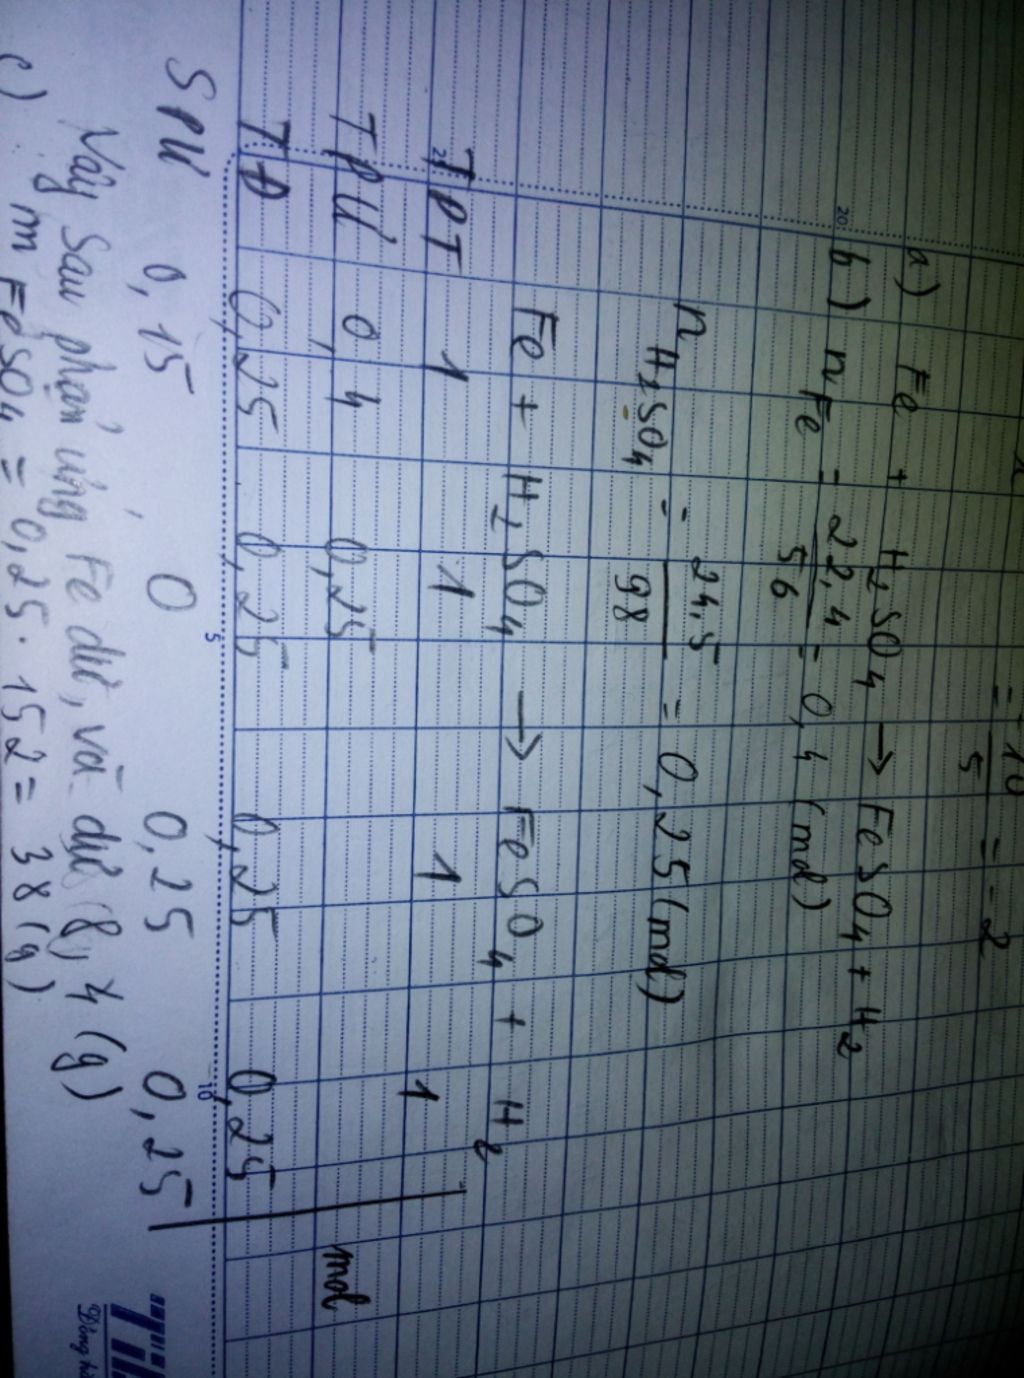 = -10/5 = -2
a) Fe + H₂SO₄ → FeSO₄ + H₂
b) n Fe = 22,4/56 = 0,4 (mol)
n H₂SO₄ = 24,5/98 = 0,25 (mol)
Fe + H₂SO₄ → FeSO₄ + H₂
TPT 1 1 1 1
TPU 0,4 0,25 mol
TĐ 0,25 0,25 0,25 0,25
SPU 0,15 0 0,25 0,25
Vậy Sau phản ứng Fe dư, và dư 8,4 (g)
c) m FeSO₄ = 0,25 . 152 = 38 (g)